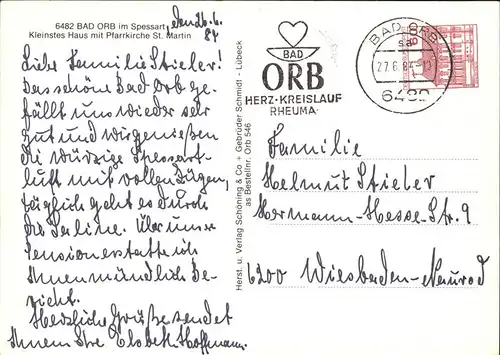 6482 BAD ORB im Spessart
Kleinstes Haus mit Pfarrkirche St. Martin
den 26. 6.
84
Liebe Familie Stieler!
Das schöne Bad Orb ge-
fällt uns wieder sehr
gut und wir genießen
die würzige Spessart-
luft mit vollen Zügen,
täglich geht es durch
die Saline. Über unsere
Pension erstatte ich
Ihnen mündlich Be-
richt.
Herzliche Grüße sendet
Ihnen Ihre Elsbeth Hoffmann.
Herst. u. Verlag Schöning & Co + Gebrüder Schmidt - Lübeck
as Bestellnr. Orb 546
BAD
ORB
HERZ·KREISLAUF
RHEUMA
BAD ORB
27.6.84
6482
Familie
Helmut Stieler
Hermann-Hesse-Str. 9
6200 Wiesbaden-Naurod